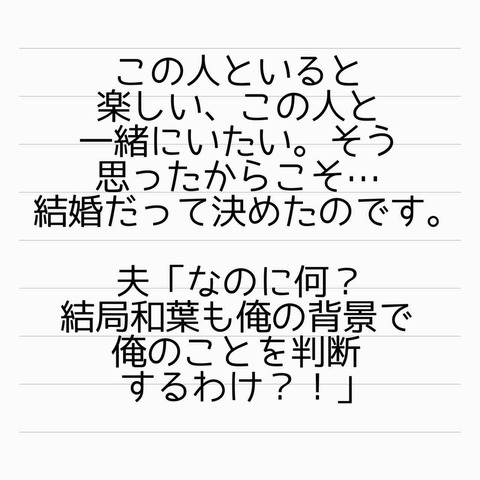 この人といると
楽しい、この人と
一緒にいたい。そう
思ったからこそ…
結婚だって決めたのです。
夫「なのに何？
結局和葉も俺の背景で
俺のことを判断
するわけ？！」